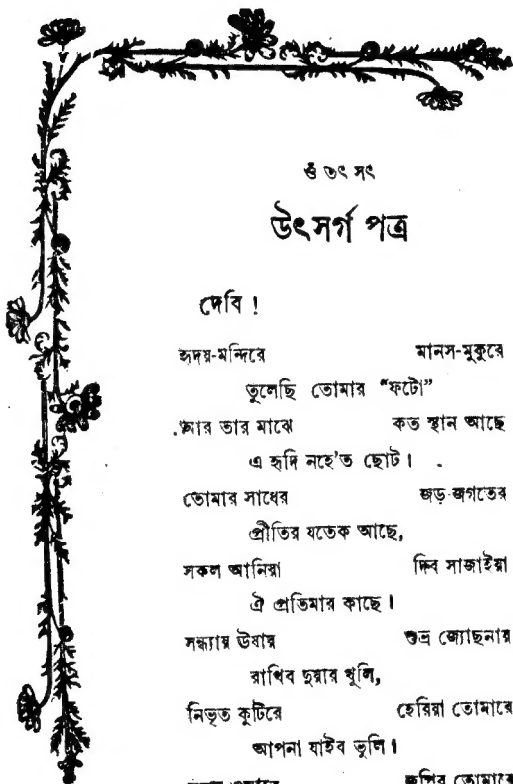 ওঁ তৎ সৎ
উৎসর্গ পত্র
দেবি !
হৃদয়-মন্দিরে মানস-মুকুরে
তুলেছি তোমার “ফটো”
আর তার মাঝে কত স্থান আছে
এ হৃদি নহে'ত ছোট।
তোমার সাধের জড়-জগতের
প্রীতির যতেক আছে,
সকল আনিয়া দিব সাজাইয়া
ঐ প্রতিমার কাছে।
সন্ধ্যায় ঊষায় শুভ্র জ্যোছনায়
রাখিব দুয়ার খুলি,
নিভৃত কুটিরে হেরিয়া তোমারে
আপনা যাইব ভুলি।
তোমারে